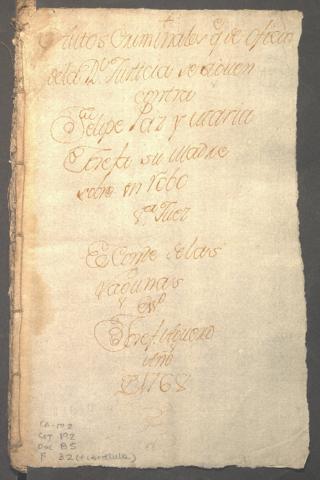 +
Autos Criminales q.e de oficio
de la R.l Justicia se siguen
contra
Felipe Paz y maria
Josefa su madre
sobre un robo
S.r Juez
El Conde de las
Lagunas
y Ess.no
Josef
Año
D 1768
CA-172
Car 172
Doc 85
F 32 (+ carátula)